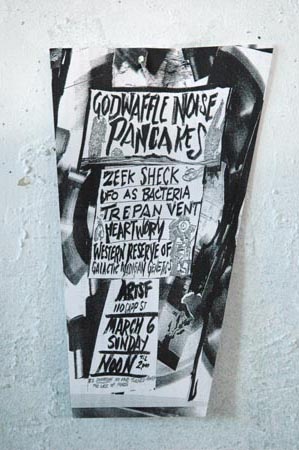 GODWAFFLE NOISE
PANCAKES
ZEEK SHECK
UFO AS BACTERIA
TREPAN VENT
HEARTWORM
WESTERN RESERVE OF
GALACTIC
ARTSF
110 CAPP ST
MARCH 6
SUNDAY
NOON
2pm